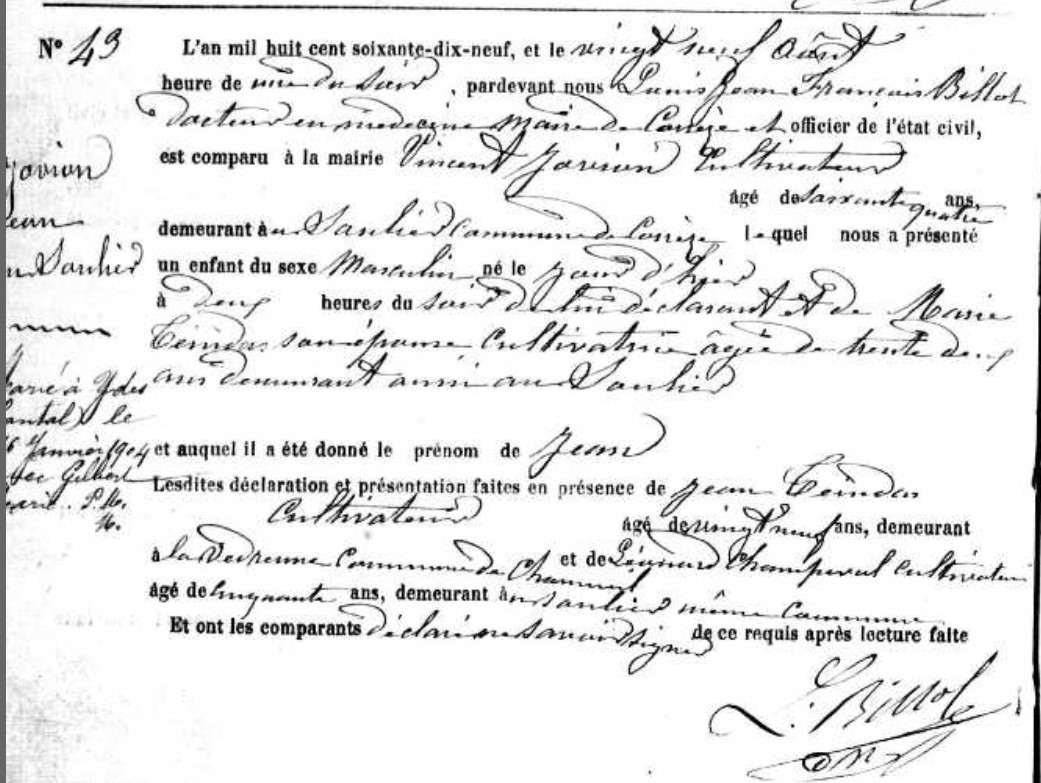 N° 43
L'an mil huit cent soixante-dix-neuf, et le vingt neuf Août
heure de une du soir, pardevant nous Louis Jean François Billot
docteur en médecine Maire de Corrèze et officier de l'état civil,
est comparu à la mairie Vincent Javion Cultivateur
âgé de soixante quatre ans,
demeurant à au Saulier Commune de Corrèze lequel nous a présenté
un enfant du sexe Masculin né le jour d'hier
à deux heures du soir de lui déclarant et de Marie
Ceindas son épouse Cultivatrice âgée de trente deux
ans demeurant aussi au Saulier
et auquel il a été donné le prénom de Jean
Lesdites déclaration et présentation faites en présence de Jean Ceindas
Cultivateur âgé de vingt neuf ans, demeurant
à la Vedrenne Commune de et de Léonard Champeval Cultivateur
âgé de Cinquante ans, demeurant à au Saulier même Commune
Et ont les comparants déclaré ne savoir signer de ce requis après lecture faite
L. Billot
Javion
Jean
au Saulier
marié à Ydes
Cantal) le
Janvier 1904
avec Gilbert
Marie.